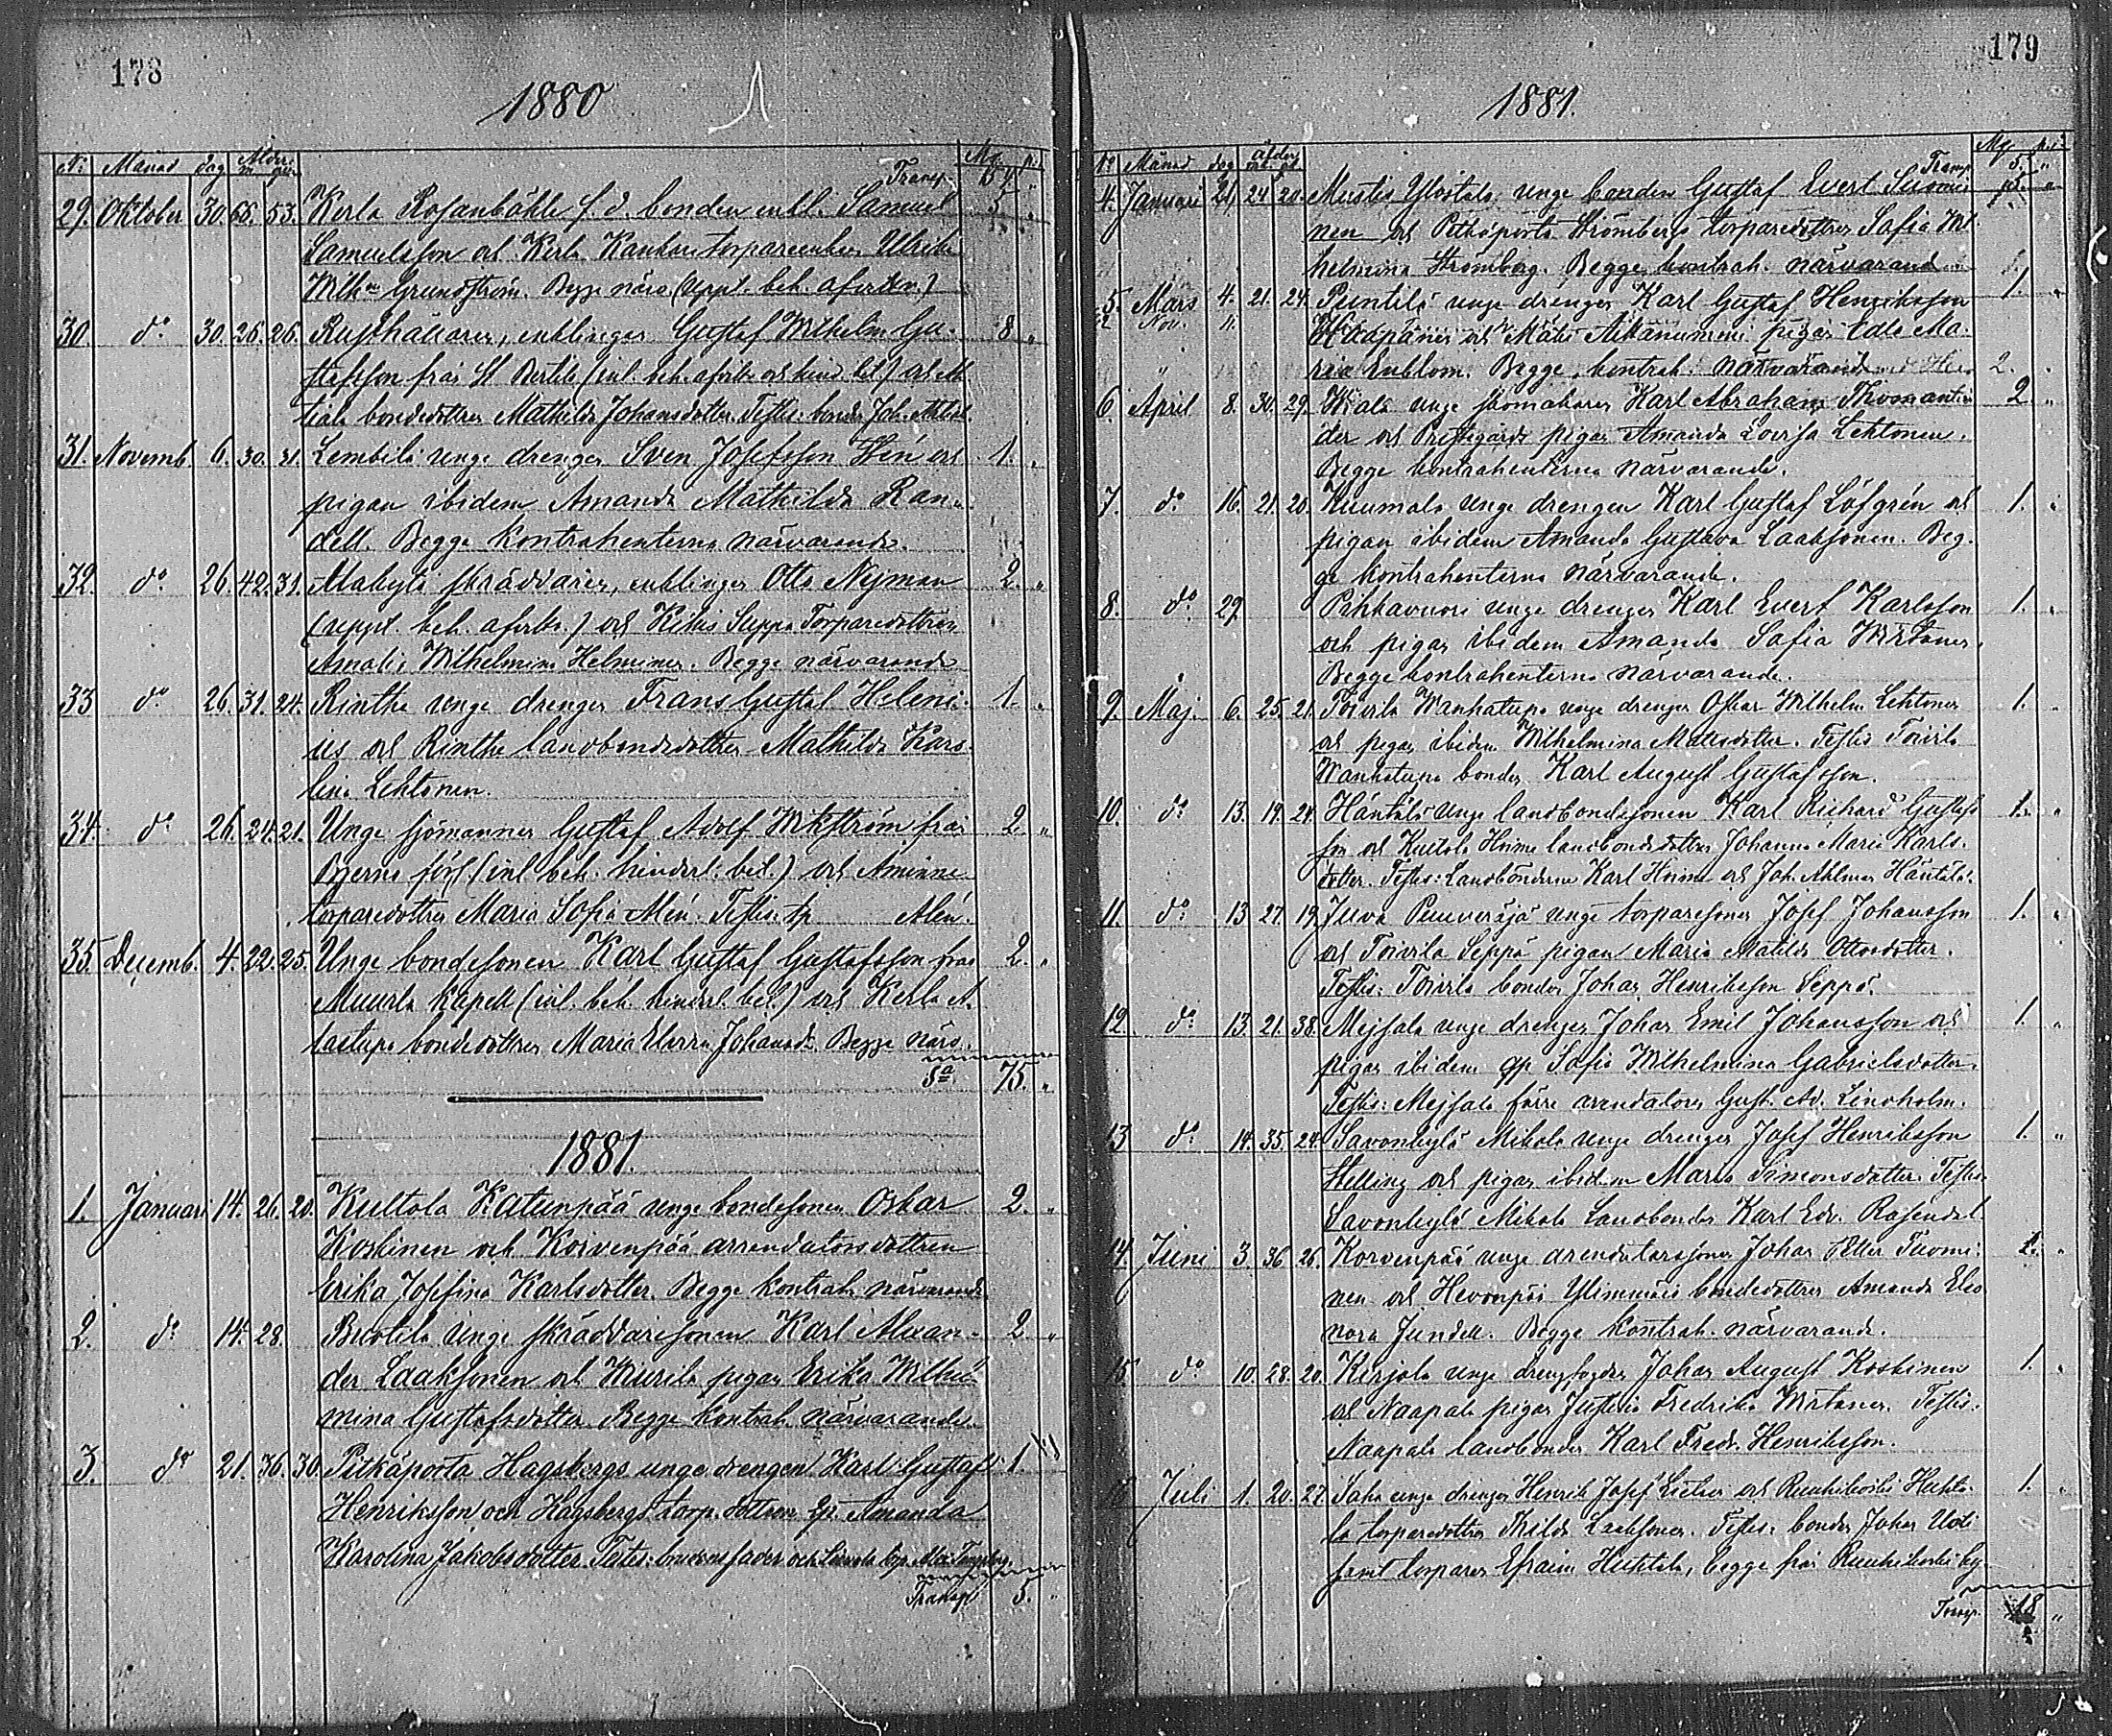 178
1880
N: Månad dag Ålder m. qv. Mg. p.
Transp. 54 "
29. Oktober 30. 66. 53. Kerla Rosanböhle f. d. bonden enkl. Samuel 3 "
Samuelsson och Kerla Kankan torpareenkan Ulrika
Wilh:a Grundström. Begge närv. (uppt. beh. afvittr.)
30. d:o 30. 26. 26. Rusthållaren, enklingen Gustaf Wilhelm Gu- 8 "
stafsson från St Bertils (inl. beh. afvittr. och hind. bet.) och
tiala bondedottren Mathilda Johansdotter. Testis: bonden Joh.
31. Novemb. 6. 30. 31. Lembilä unge drengen Sven Josefsson Hén och 1. "
pigan ibidem Amanda Mathilda Ran-
dell. Begge kontrahenterna närvarande.
32. d:o 26. 42. 31. Alakylä skräddaren, enklingen Otto Nejman 2. "
(uppt. beh. afvittr.) och Kikis Seppä Torparedottren
Amalia Wilhelmina Helminen. Begge närvarande
33 d:o 26. 31. 24. Rinthe unge drengen Frans Gustaf Heleni- 1. "
us och Rinthe landbondedottren Mathilda Karo-
lina Lehtonen.
34. d:o 26. 24. 21. Unge sjömannen Gustaf Adolf Wikström från 2. "
Bjerno förs. (inl. beh. hinderl. bet.) och Aminne
torparedottren Maria Sofia Alén. Testis: tp Alén.
35 Decemb. 4. 22. 25. Unge bondesonen Karl Gustaf Gustafsson från 2. "
Muurla kapell (inl. beh. hinderl. bet.) och Kerla A-
latupa bondedottren Maria Johansd. Begge närv.
S:a 75. "
1881.
1. Januari 14. 26. 20. Kultola Katunpää unge bondesonen Oskar 2. "
Koskinen och Koivenpää arrendatorsdottren
Erika Josefina Karlsdotter. Begge kontrah. närvarande
2. d:o 14. 28. Buotila unge skräddaresonen Karl Alexan- 2 "
der Laaksonen och Wuorila pigan Erika Wilhel-
mina Gustafsdotter. Begge kontrah. närvarande.
3. d:o 21. 36. 30. Pitkäporta Hagsbergs unge drengen Karl Gustafs 1 "
Henriksson och Hagsbergs torp. dottren qp. Amanda
Karolina Jakobsdotter. Testes: brudens fader och torp.
Transp 5. "
179
1881.
N:o Månad dag Ålder m. qv. Mg. p.
Transp. 5 "
4. Januari 21, 24 20. Mustis Ylöstalo unge bonden Gustaf Evert Suomi-
nen och Pitkäporta Strömbergs torparedottren Sofia Wil-
helmina Strömberg. Begge kontrah. närvarand
5. Mars 4. 21. 24. Puntila unge drengen Karl Gustaf Henriksson 1. "
Nov. 11. Haapanen och Mäki Alhanummi pigan Edla Ma-
ria Enblom. Begge kontrah. närvarand 2.
6 April 8. 30. 29. Wiala unge skomakaren Karl Abraham 2. "
der och Prestgårds pigan Amanda Lovisa Lehtonen.
Begge kontrahenterna närvarande.
7. d:o 16. 21. 20. Kuumala unge drengen Karl Gustaf Löfgrén och 1. "
pigan ibidem Amanda Gustava Laaksonen. Beg-
ge kontrahenterna närvarande.
8. d:o 29 Pihkavuori unge drengen Karl Evert Karlsson 1. "
och pigan ibidem Amanda Sofia Wirtanen.
Begge kontrahenterna närvarande.
9. Maj 6. 25. 21. Toivila Wanhatupa unge drengen Oskar Wilhelm Lehtonen 1. "
och pigan ibidem Wilhelmina Mattsdotter. Testis Toivila
Wanhatupa bonden Karl August Gustafsson.
10. d:o 13. 19. 24. Häntälä unge landbondesonen Karl Richard Gustafs- 1. "
son och Kultola Heime landbondedottren Johanna Maria Karls-
dotter. Testes: Landbönderna Karl Heime och Joh. Ahlman Häntälä.
11. d:o 13 27. 19 Juva Punveräjä unge torparesonen Josef Johansson 1. "
och Toivila Seppä pigan Maria Matilda Ottosdotter.
Testis: Toivila bonden Johan Henriksson Seppä.
12. d:o 13. 21. 38. Mejsala unge drengen Johan Emil Johansson och 1. "
pigan ibidem qp Sofia Wilhelmina Gabrielsdotter.
Testis: Mejsala förre arendatoren Gust. Ad. Lindholm.
13 d:o 14. 35. 24. Savonkylä Mikola unge drengen Josef Henriksson 1. "
Helling och pigan ibidem Maria Simonsdotter. Testis
Savonkylä Mikola Landbonden Karl Edv. Rosendal.
14. Juni 3. 36 26. Korvenpää unge arendatorssonen Johan Petter Tuomi- 1. "
nen och Hevonpää Ylimmäis bondedottren Amanda Eleo
nora Jundell. Begge kontrah. närvarande.
15 d:o 10. 28. 20. Kirjola unge drengfogden Johan August Koskinen 1. "
och Naapala pigan Justina Fredrika Wirtanen. Testis.
Naapala landbonden Karl Fredr. Henriksson.
Juli 1. 20. 27. unge drengen Henrik Josef och Ruuhikoski Huhta-
la torparedottren Hilda Laaksonen. Testes: bonden Johan Uoti
samt torparen Efraim Huhtala, begge från Ruuhikoski by
Transp. 18 "